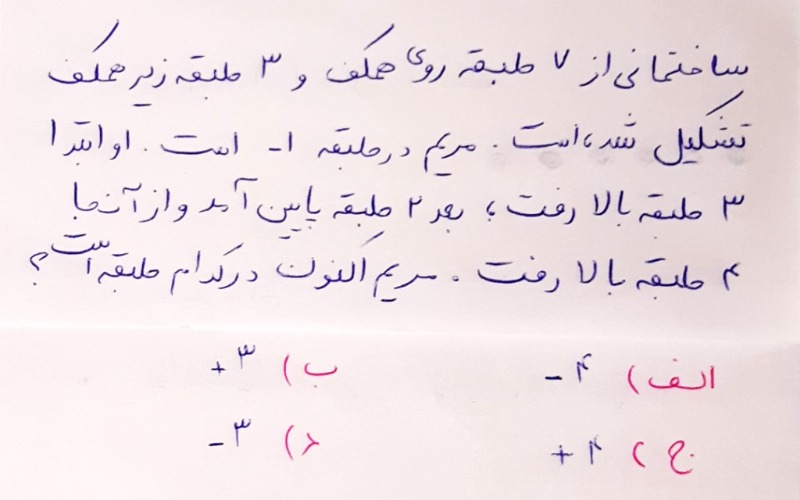 ساختمانی از ۷ طبقه روی همکف و ۳ طبقه زیر همکف
تشکیل شده است. مریم در طبقه ۱- است. او ابتدا
۳ طبقه بالا رفت؛ بعد ۲ طبقه پایین آمد و از آنجا
۴ طبقه بالا رفت. مریم اکنون در کدام طبقه است؟
الف) ۴- ب) ۳+
ج) ۴+ د) ۳-